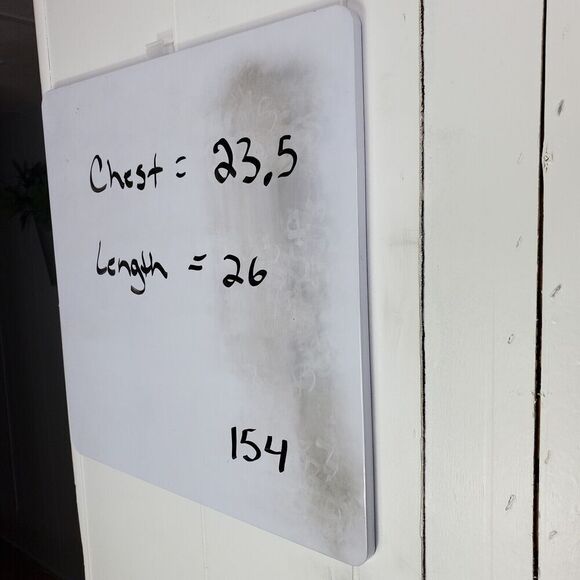 Chest = 23.5
Length = 26
154